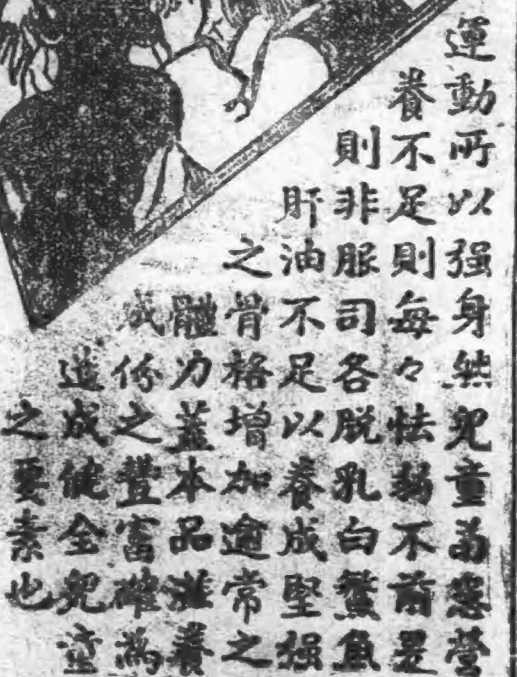 運動所以强身然兒童苟患營
養不足則每々怯弱不前是
則非服司各脫乳白鰵魚
肝油不足以養成堅强
之骨格增加逾常之
體力蓋本品滋養
成份之豐富確為
造成健全兒童
之要素也